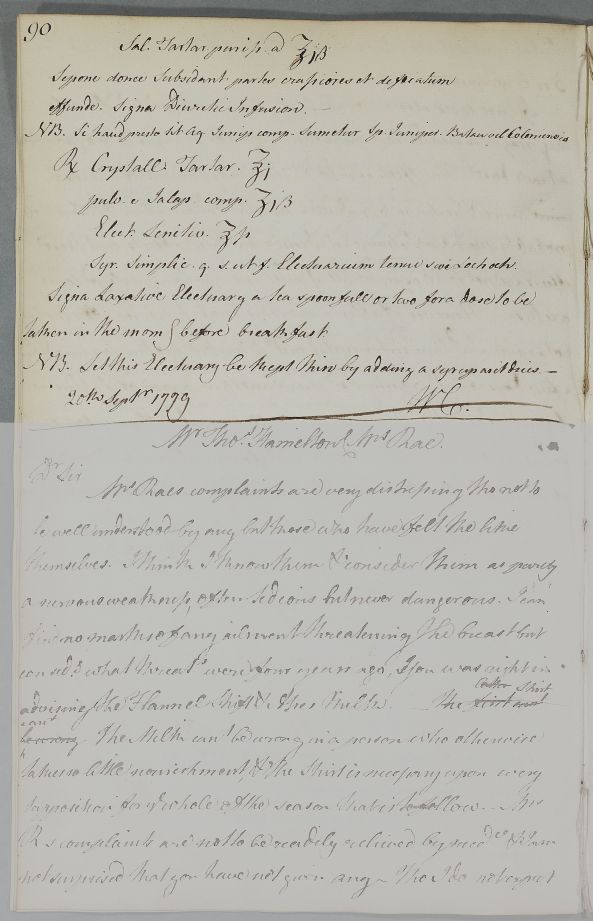 90
Sal. Tartar. puri p. a ʒiß
Sepone donec Subsidant partes crassiores et defæcatum
effunde. Signa Diuretic Infusion.
NB. Si haud presto sit Aq. Junip. comp. Sumetur Sp. Juniper.
Rx Crystall. Tartar. ℥j
pulv. e Jalap. comp. ʒiß
Elect. Lenitiv. ℥
Syr. Simplic. q. s. ut f. Electuarium tenue sive Lochoch.
Signa Laxative Electuary a tea spoonfull or two for a Dose to be
taken in the morng before breakfast
NB. Let this Electuary be kept thin by adding a syrup as it dries. —
20th Septr 1799 WC.
Mr Thos. Hamilton, Mrs Rae.
Dr Sir
Mrs Raes complaints are very distressing tho not to
be well understood by any but those who have felt the like
themselves. I think I know them & consider them as purely
a nervous weakness, often tedious but never dangerous. I can
find no marks of any ailment threatening the breast but
consid.g what threats were four years ago, you was right in
advising the Flannel Shift & Asses Milk. The
cant
The Milk cant be wrong in a person who otherwise
takes so little nourishment, & the Shirt is necessary upon every
supposition for ye whole of the season that is to follow. Mrs
Rs complaints are not to be readily relieved by medces & I am
not surprised that you have not given any – Tho I do not expect